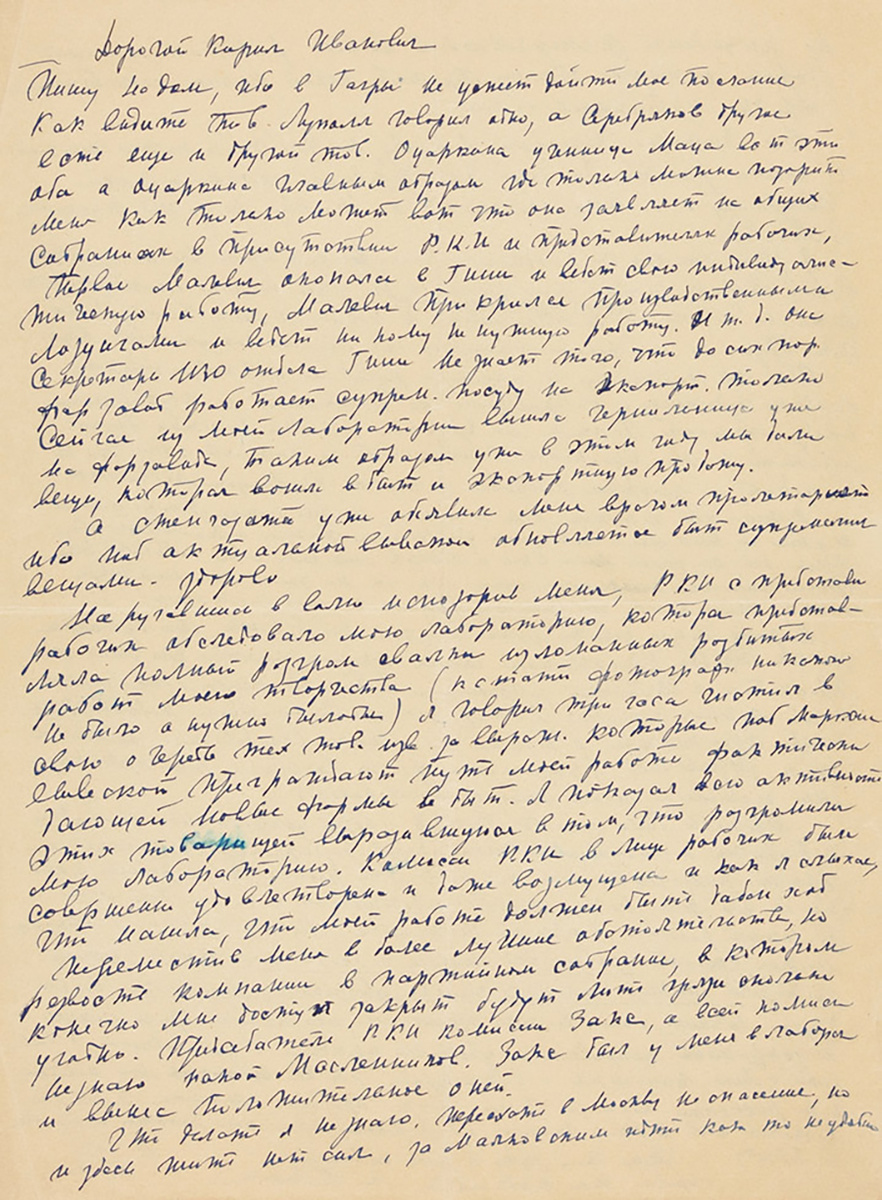 Дорогой Кирил Иванович
Пишу на дом, ибо в Гагры не успеет дойти мое послание
Как видите тов. Луполл говорил одно, а Серебряков другое
есть еще и другой тов. Очаркина ученица Маца вот эти
оба а Очаркина главным образом где только можно подорить
меня как только может вот что она заявляет на общих
собраниях в присутствии Р.К.И и представителях рабочих,
Первое Малевич окопался в Гиии и ведет свою индивидуалис-
тическую работу, Малевич прикрылся производственными
лозунгами и ведет ни кому не нужную работу. И т.д. она
Секретарь ИЗО отдела Гиии не знает того, что до сих пор
фарзавод работает супрем. посуду на экспорт. только
сейчас из моей лаборатории вышла чернильница уже
на фарзавода, таким образом уже в этом году мы дали
вещи, которая вошли в быт и экспортную продажу.
А стенгазета уже обявила меня врагом пролетариата
ибо под актуальной вывеской обновляется быт супрематич
вещами. здорово
Наругавшись в волю исподорив меня, РКИ с представи
рабочих обследовало мою лабораторию, которая представ-
ляла полный розгром свалки изломанных розбитых
работ моего творчества (кстати фотографа никакого
не было а нужно было бы) Я говорил три часа чистил в
свою очередь тех тов. изо за выраж. которые под марксис
вывеской преграждают путь моей работе фактически
дающей новые формы в быт. Я показал всю активность
этих товарищей выразившуюся в том, что розгромили
мою лабораторию. Комисси РКИ в лице рабочих были
совершенно удовлетворена и даже возмущена и как я слыхал,
что нашла, что моей работе должен быть дабан ход
переместив меня в более лучшие обстоятельства, но
резвость компании в партийном собрание, в котором
конечно мне доступ закрыт будут лить грязи сколько
угодно. Председатель РКИ комисии Закс, а всей комиси
не знаю какой Масленников. Закс был у меня в лаборат
и вынес положительное о ней.
Что делать я не знаю. переехать в Москву не спасение, но
и здесь жить нет сил, за Маяковским идти как то неудобно